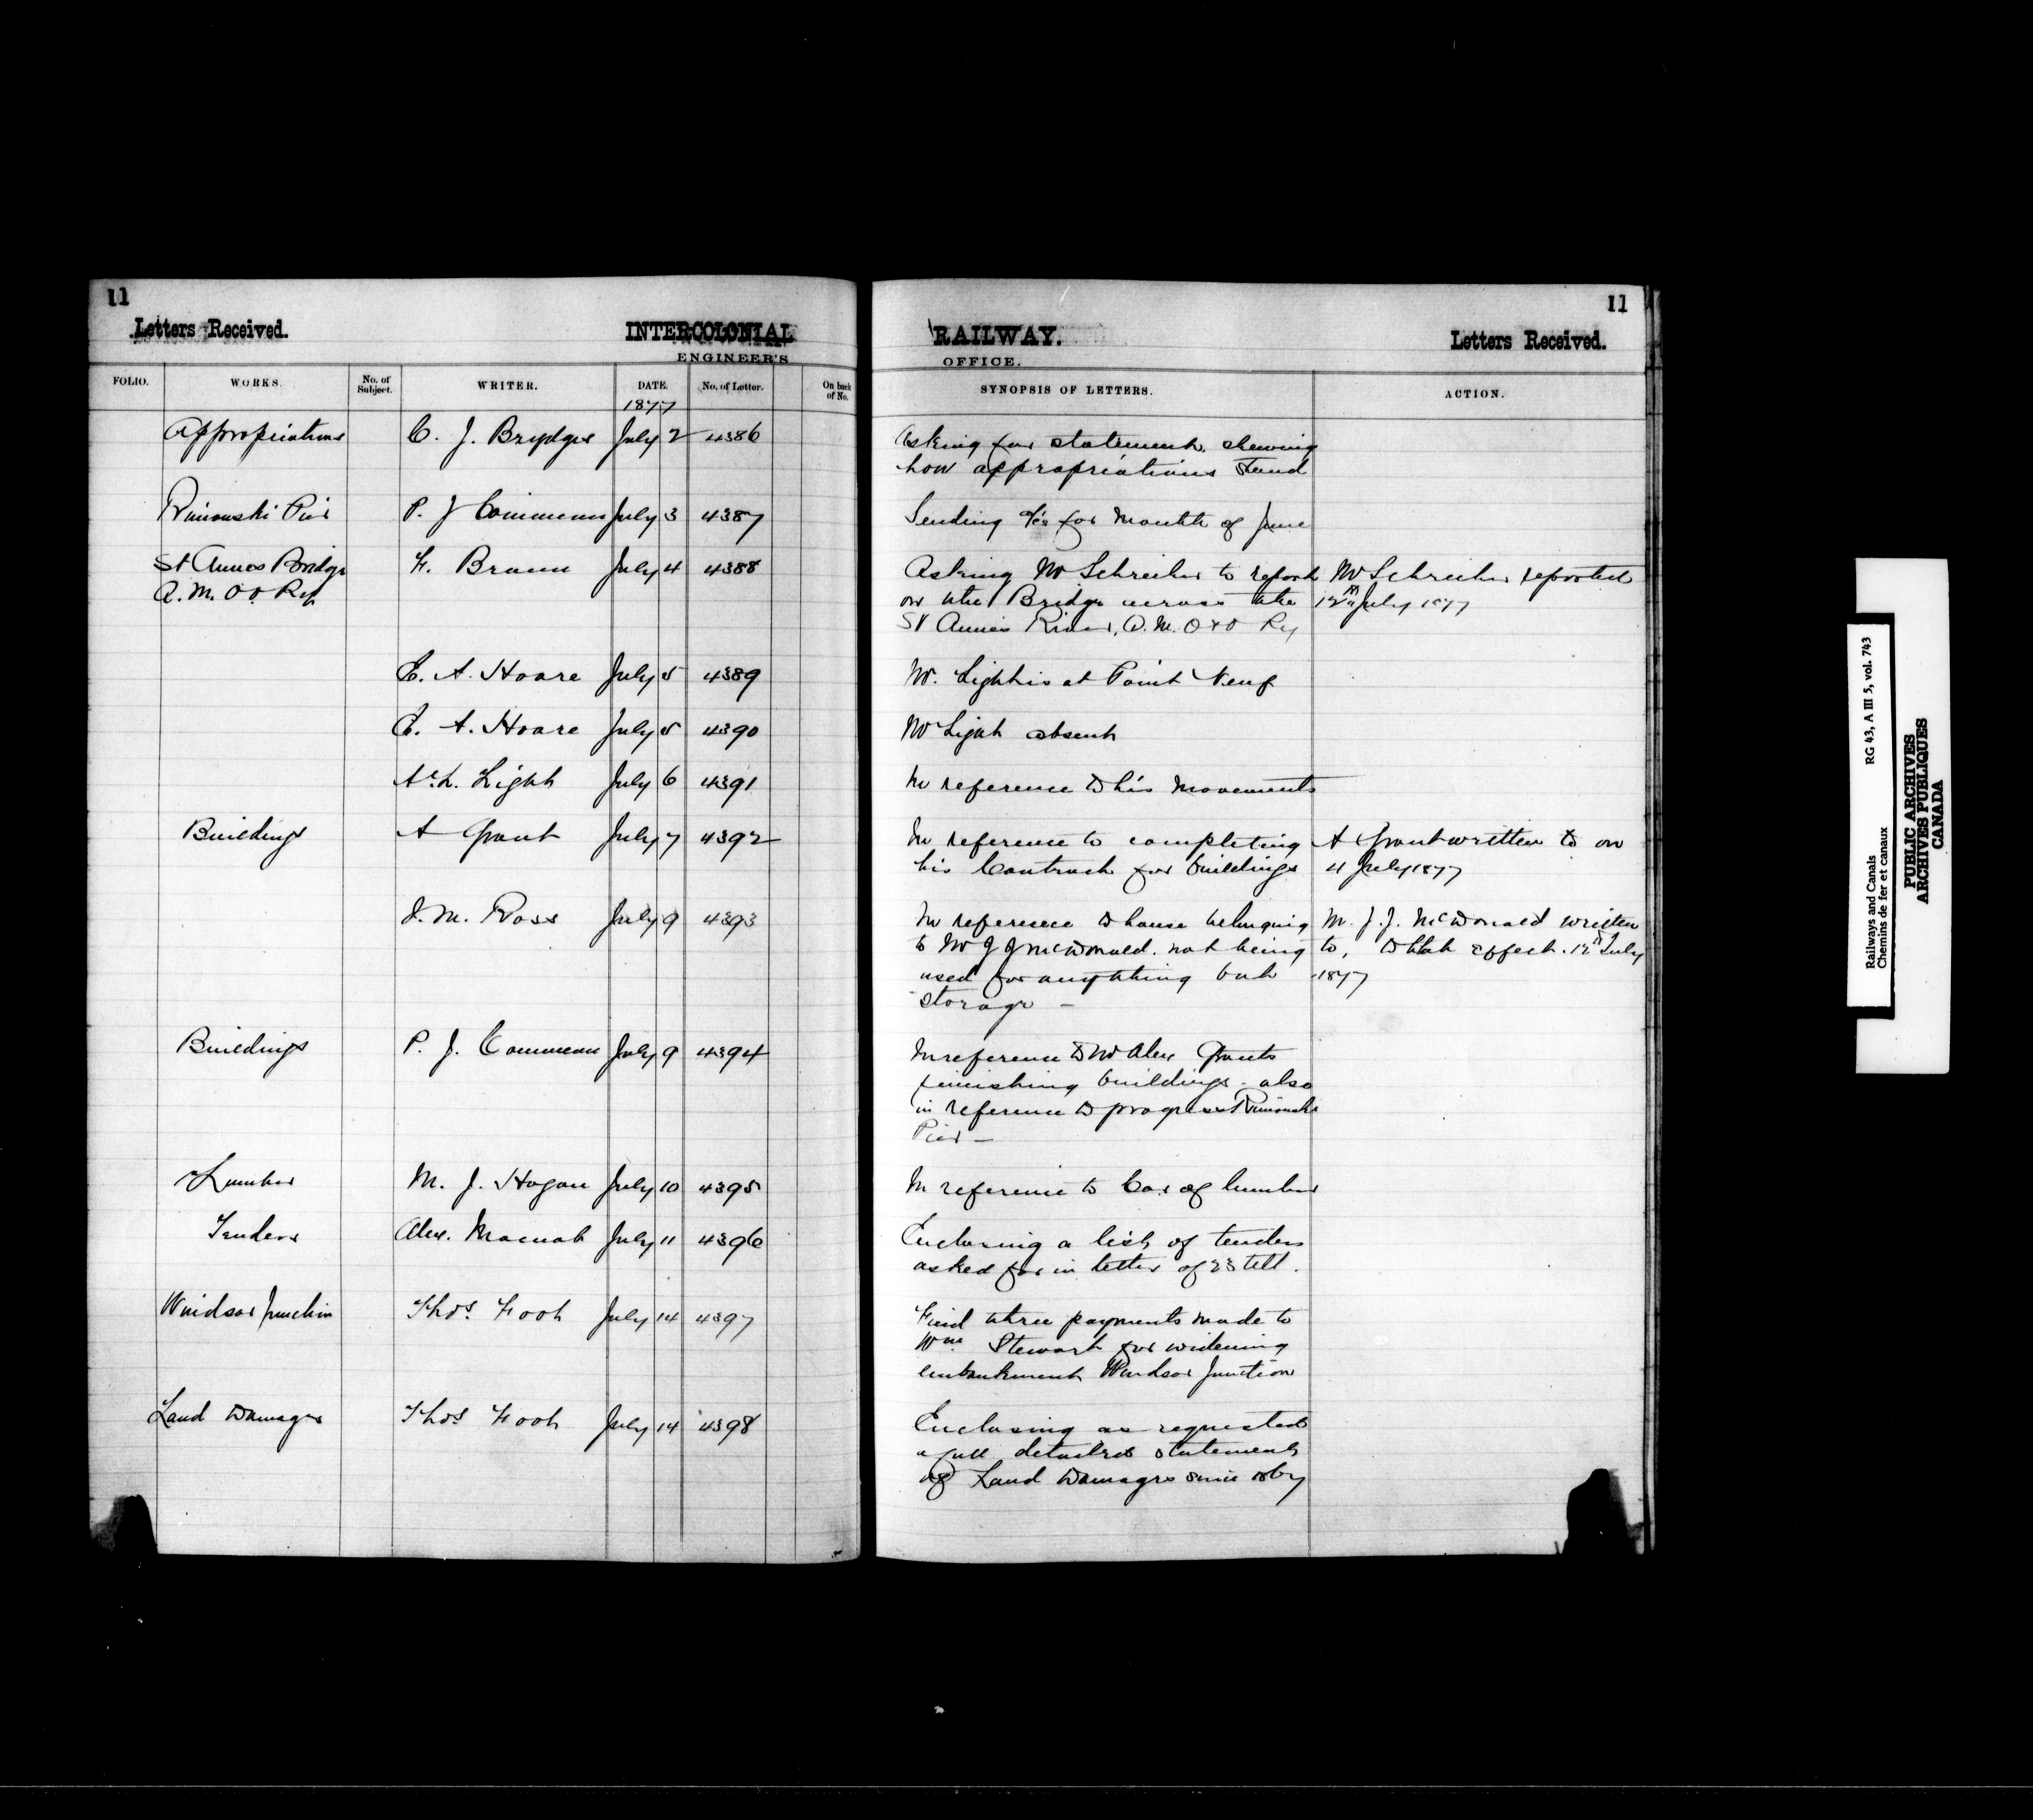 11
Letters Received.
INTERCOLONIAL
ENGINEER'S
FOLIO. WORKS. No. of Subject. WRITER. DATE. No. of Letter. On back of No.
1877
Appropriations C. J. Brydges July 2 4386
Rimouski Pier P. J Commeau July 3 4387
St Annes Bridge F. Braun July 4 4388
Q. M. O & O. Ry
E. A. Hoare July 5 4389
E. A. Hoare July 5 4390
A. L. Light July 6 4391
Buildings A Grant July 7 4392
J. M. Ross July 9 4393
Buildings P. J. Commeau July 9 4394
Lumber M. J. Hogan July 10 4395
Tenders Alex. Macnab July 11 4396
Windsor Junction Thos. Foot July 14 4397
Land Damages Thos Foot July 14 4398
11
RAILWAY.
Letters Received.
OFFICE.
SYNOPSIS OF LETTERS. ACTION.
Asking for statement shewing
how appropriations stand
Sending a/cs for Month of June
Asking Mr Schreiber to report Mr Schreiber reported
on the Bridge across the 12th July 1877
St Annes River, Q. M. O & O Ry
Mr. Light is at Point Neuf
Mr Light absent
In reference to his movements
In reference to completing A Grant written to on
his Contract for buildings 11 July 1877
In reference to house belonging M. J. J. McDonald written
to Mr J J McDonald. not being to, to that effect. 12th July
used for anything but 1877
storage —
In reference to Mr Alex Grants
finishing buildings - also
in reference to progress Rimouski
Pier —
In reference to Car of lumber
Enclosing a list of tenders
asked for in letter of 23
Find three payments made to
Wm Stewart for widening
embankment Windsor Junction
Enclosing as requested
a full detailed statement
of Land Damages since
Railways and Canals RG 43, A III 5, vol. 743
Chemins de fer et canaux
PUBLIC ARCHIVES
ARCHIVES PUBLIQUES
CANADA